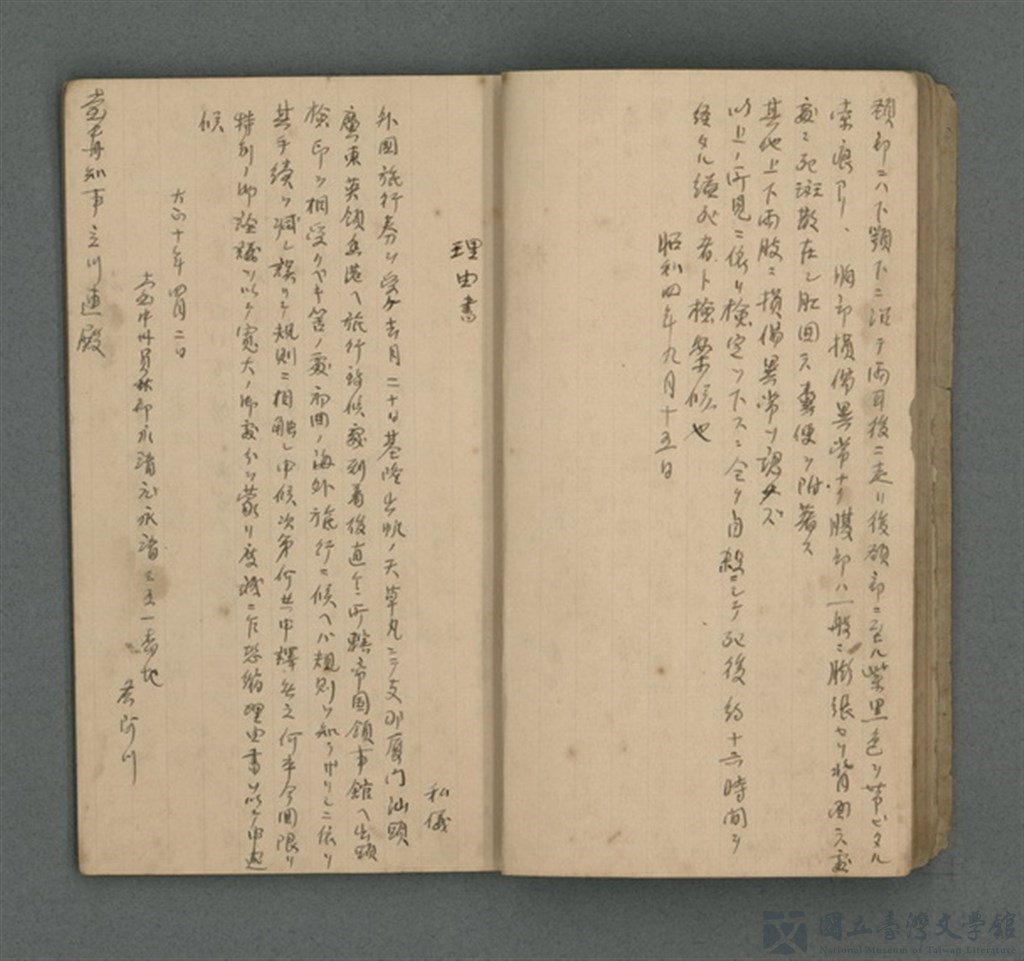 頸部ニハ下顎下ニ沿テ両耳後ニ走リ後頭部ニ至ル紫黒色ヲ帯ビタル
索痕アリ、胸部損傷異常ナク腹部ハ一般ニ膨張セリ背面ハ処
処ニ死斑散在シ肛囲ハ糞便ヲ附着ス
其他上下両肢ニ損傷異常ヲ認メズ
以上ノ所見ニ依リ検定ヲ下スニ全ク自殺ニシテ死後約十六時間ヲ
経タル縊死者ト検案候也
昭和四年九月十五日
理由書
私儀
外国旅行券ヲ受ケ去月二十日基隆出帆ノ天草丸ニテ支那厦門汕頭
廣東英領香港ヘ旅行致候処到着後直ニ所轄帝国領事館ヘ出頭
検印ヲ相受クベキ筈ノ処初回ノ海外旅行ニ候ヘバ規則ヲ知ラザリシニ依リ
其手続ヲ減シ誤リテ規則ニ相触レ申候次第何共申譯無之何卒今回限リ
特別ノ御詮議ヲ以テ寛大ノ御処分ヲ蒙リ度誠ニ乍恐縮理由書以テ申也
候
大正十年四月二日
台中州員林郡永靖庄永靖三五一番地
阿川
臺中州知事立川連殿